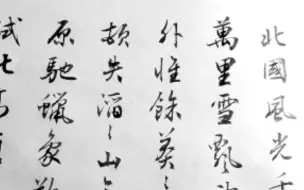 北國風光千
萬里雪飄
外惟餘莽
頓失滔〻山
原馳蠟象
試比高